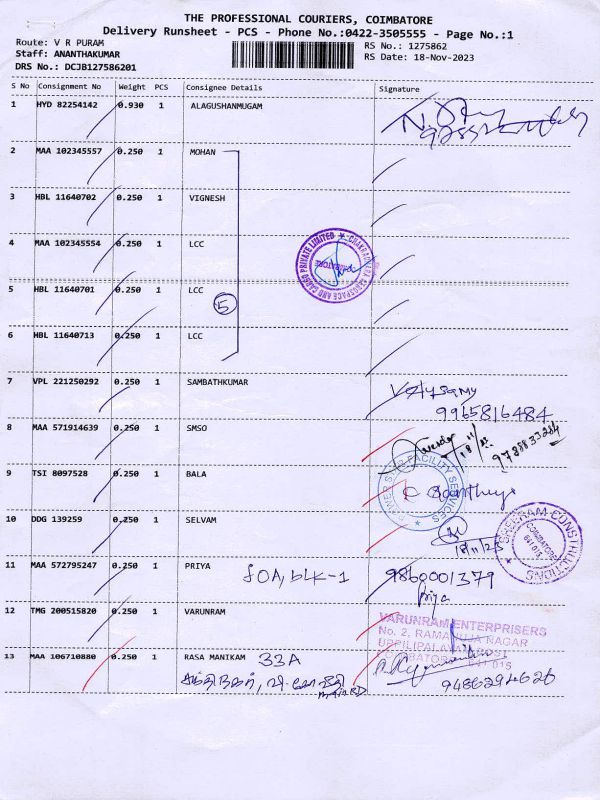 THE PROFESSIONAL COURIERS, COIMBATORE
Delivery Runsheet - PCS - Phone No.:0422-3505555 - Page No.:1
Route: V R PURAM
Staff: ANANTHAKUMAR
DRS No.: DCJB127586201
RS No.: 1275862
RS Date: 18-Nov-2023
S No Consignment No Weight PCS Consignee Details Signature
1 HYD 82254142 0.930 1 ALAGUSHANMUGAM
2 MAA 102345557 0.250 1 MOHAN
3 HBL 11640702 0.250 1 VIGNESH
4 MAA 102345554 0.250 1 LCC
5 HBL 11640701 0.250 1 LCC
5
6 HBL 11640713 0.250 1 LCC
7 VPL 221250292 0.250 1 SAMBATHKUMAR
9965816484
8 MAA 571914639 0.250 1 SMSO
9 TSI 8097528 0.250 1 BALA
FACILITY SERVICES
10 DDG 139259 0.250 1 SELVAM
SHEERAM CONSTRUCTIONS
COIMBATORE
641 015
18/11/23
11 MAA 572795247 0.250 1 PRIYA 9860001379
Priya
12 TMG 200515820 0.250 1 VARUNRAM
VARUNRAM ENTERPRISERS
No. 2, RAMANUJA NAGAR
13 MAA 106710880 0.250 1 RASA MANIKAM 33A
9486294626